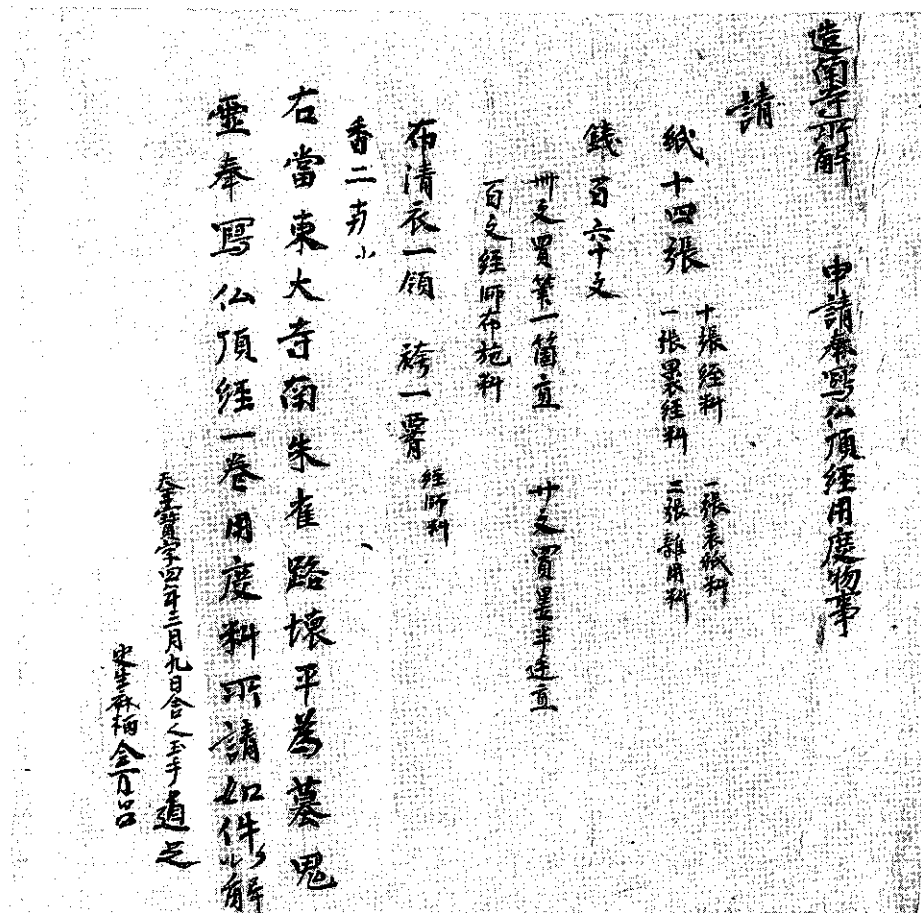 造南寺所解 申請奉寫仏頂経用度物事
請
紙十四張 十張経料 一張表紙料
一張褁経料 二張雑用料
銭百六十文
卌文買筆一箇直 廿文買墨半廷直
百文経師布施料
布清衣一領 袴一署 経師料
香二両小
右當東大寺南朱雀路壊平為墓鬼
霊奉寫仏頂経一巻用度料所請如件以解
天平寳字四年三月九日舎人玉手道足
史生麻柄全万呂